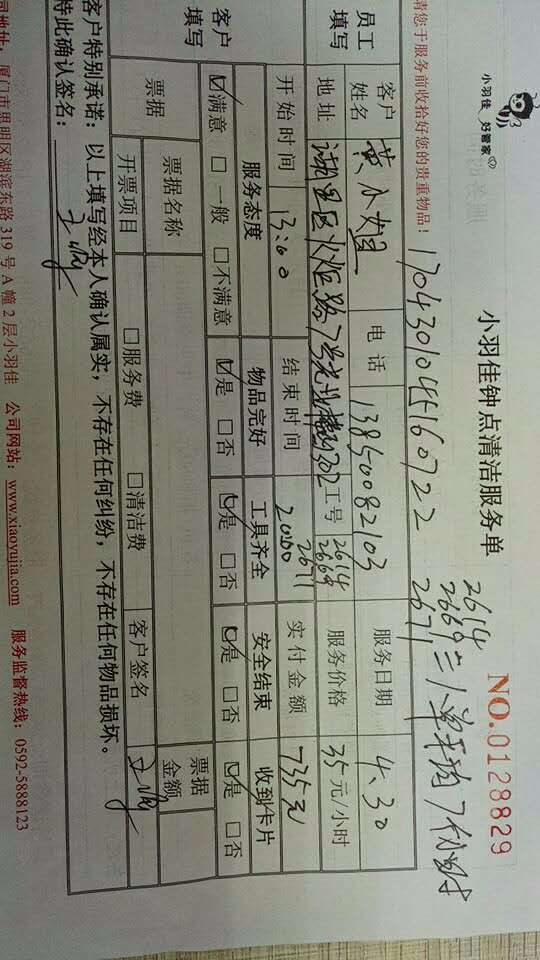 小羽佳 好管家
小羽佳钟点清洁服务单
NO.0128829
请您于服务前收拾好您的贵重物品!
2614
2669
2671
员工填写
客户姓名 黄小姐 电话 13850082103 服务日期 4.30
地址 湖里区火炬路7号 302 工号 2614 2669 2671 服务价格 35元/小时
开始时间 13:00 结束时间 20:00 实付金额 735元
客户填写
服务态度 物品完好 工具齐全 安全结束 收到卡片
☑满意 □一般 □不满意 ☑是 □否 ☑是 □否 ☑是 □否 ☑是 □否
票据 票据名称 票据金额
开票项目 □服务费 □清洁费 客户签名
客户特别承诺：以上填写经本人确认属实，不存在任何纠纷，不存在任何物品损坏。
特此确认签名：
司地址：厦门市思明区湖滨东路319号A幢2层小羽佳 公司网站：www.xiaoyujia.com 服务监督热线：0592-5888123